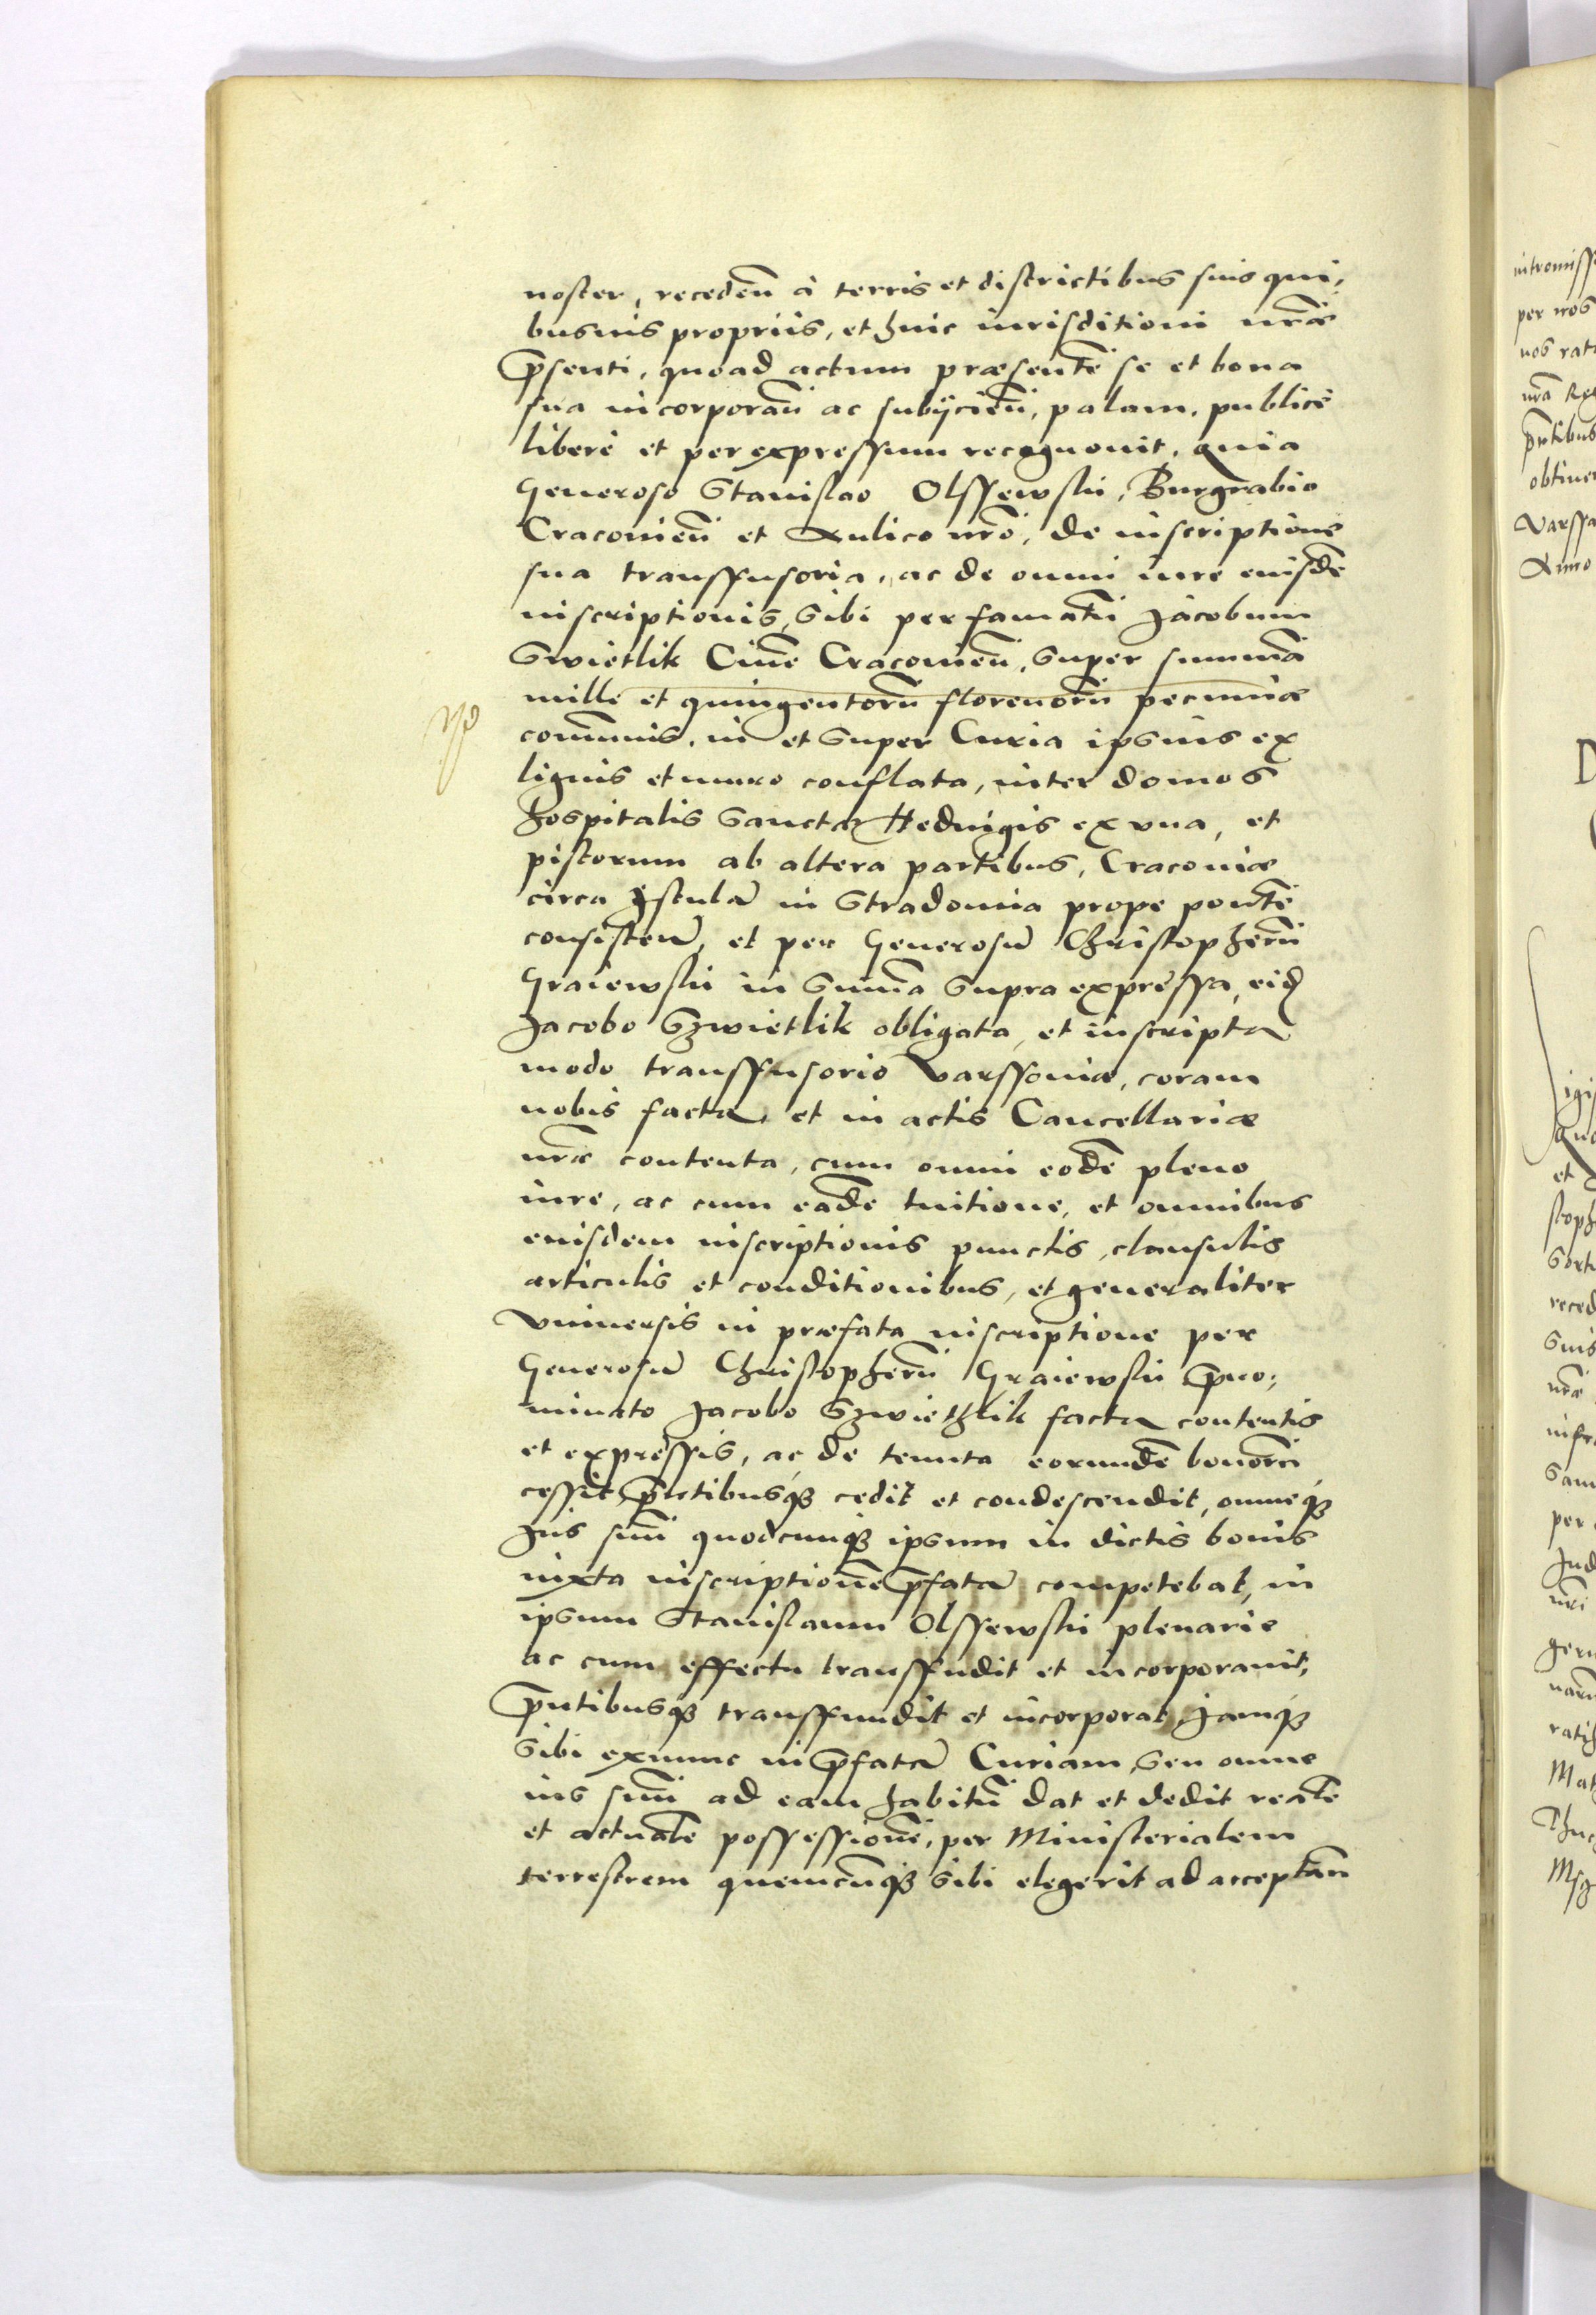 noster, recedeñ à terris et districtibus suis qui,
busuis propriis, et huic iurisditioni nr̃æ
p̃senti, quoad actum præsentẽ se et bona
sua incorporañ ac subÿcieñ, palam, publicè
liberè et per expressum recognouit, quia
Generoso Stanislao Olssewskii, Burgrabio
Cracouieñ et Aulico nr̃o, de inscriptione
sua transfusoria, ac de omni iure eiusdẽ
inscriptionis, sibi per famatũ Jacobum
Swietlik Ciuẽ Cracouieñ, super summã
mille et quingentorũ florenorũ pecuniæ
com̃unis, in et super Curia ipsius ex
lignis et muro conflata, inter domos
hospitalis Sanctæ Heduigis ex vna, et
pistorum ab altera partibus, Cracouiæ
circa Istulã in Stradomia prope pontẽ
consisteñ, et per Generosũ Christopherũ
Graiewskii in Sum̃a supra expressa, eid
Jacobo Szwietlik obligata, et inscripta
modo transfusorio Varssouiæ, coram
nobis facta, et in actis Cancellariæ
nr̃æ contenta, cum omni eodẽ pleno
iure, ac cum eadẽ tuitione, et omnibus
eiusdem inscriptionis punctis, clausulis
articulis et conditionibus, et generaliter
vniuersis in præfata inscriptione per
Generosũ Christopherũ Graiewskii p̃no,
minato Jacobo Szwiethlik facta contentis
et expressis, ac de tenuta eorundẽ bonorũ
cessit, p̃ntibusq̃ cedit et condescendit, omneq̃
Jus suũ quodcunq̃ ipsum in dictis bonis
iuxta inscriptionẽ p̃fatã competebat, in
ipsum Stanislaum Olssewskii plenarie
ac cum effectu transfudit et incorporauit,
p̃ntibusq̃ transfundit et incorporat, Jamq̃
sibi exnunc in p̃fatã Curiam, seu omne
ius suũ ad eam habitũ dat et dedit realẽ
et actualẽ possessionẽ, per Ministerialem
terrestrem quemcũq̃ sibi elegerit ad acceptañ